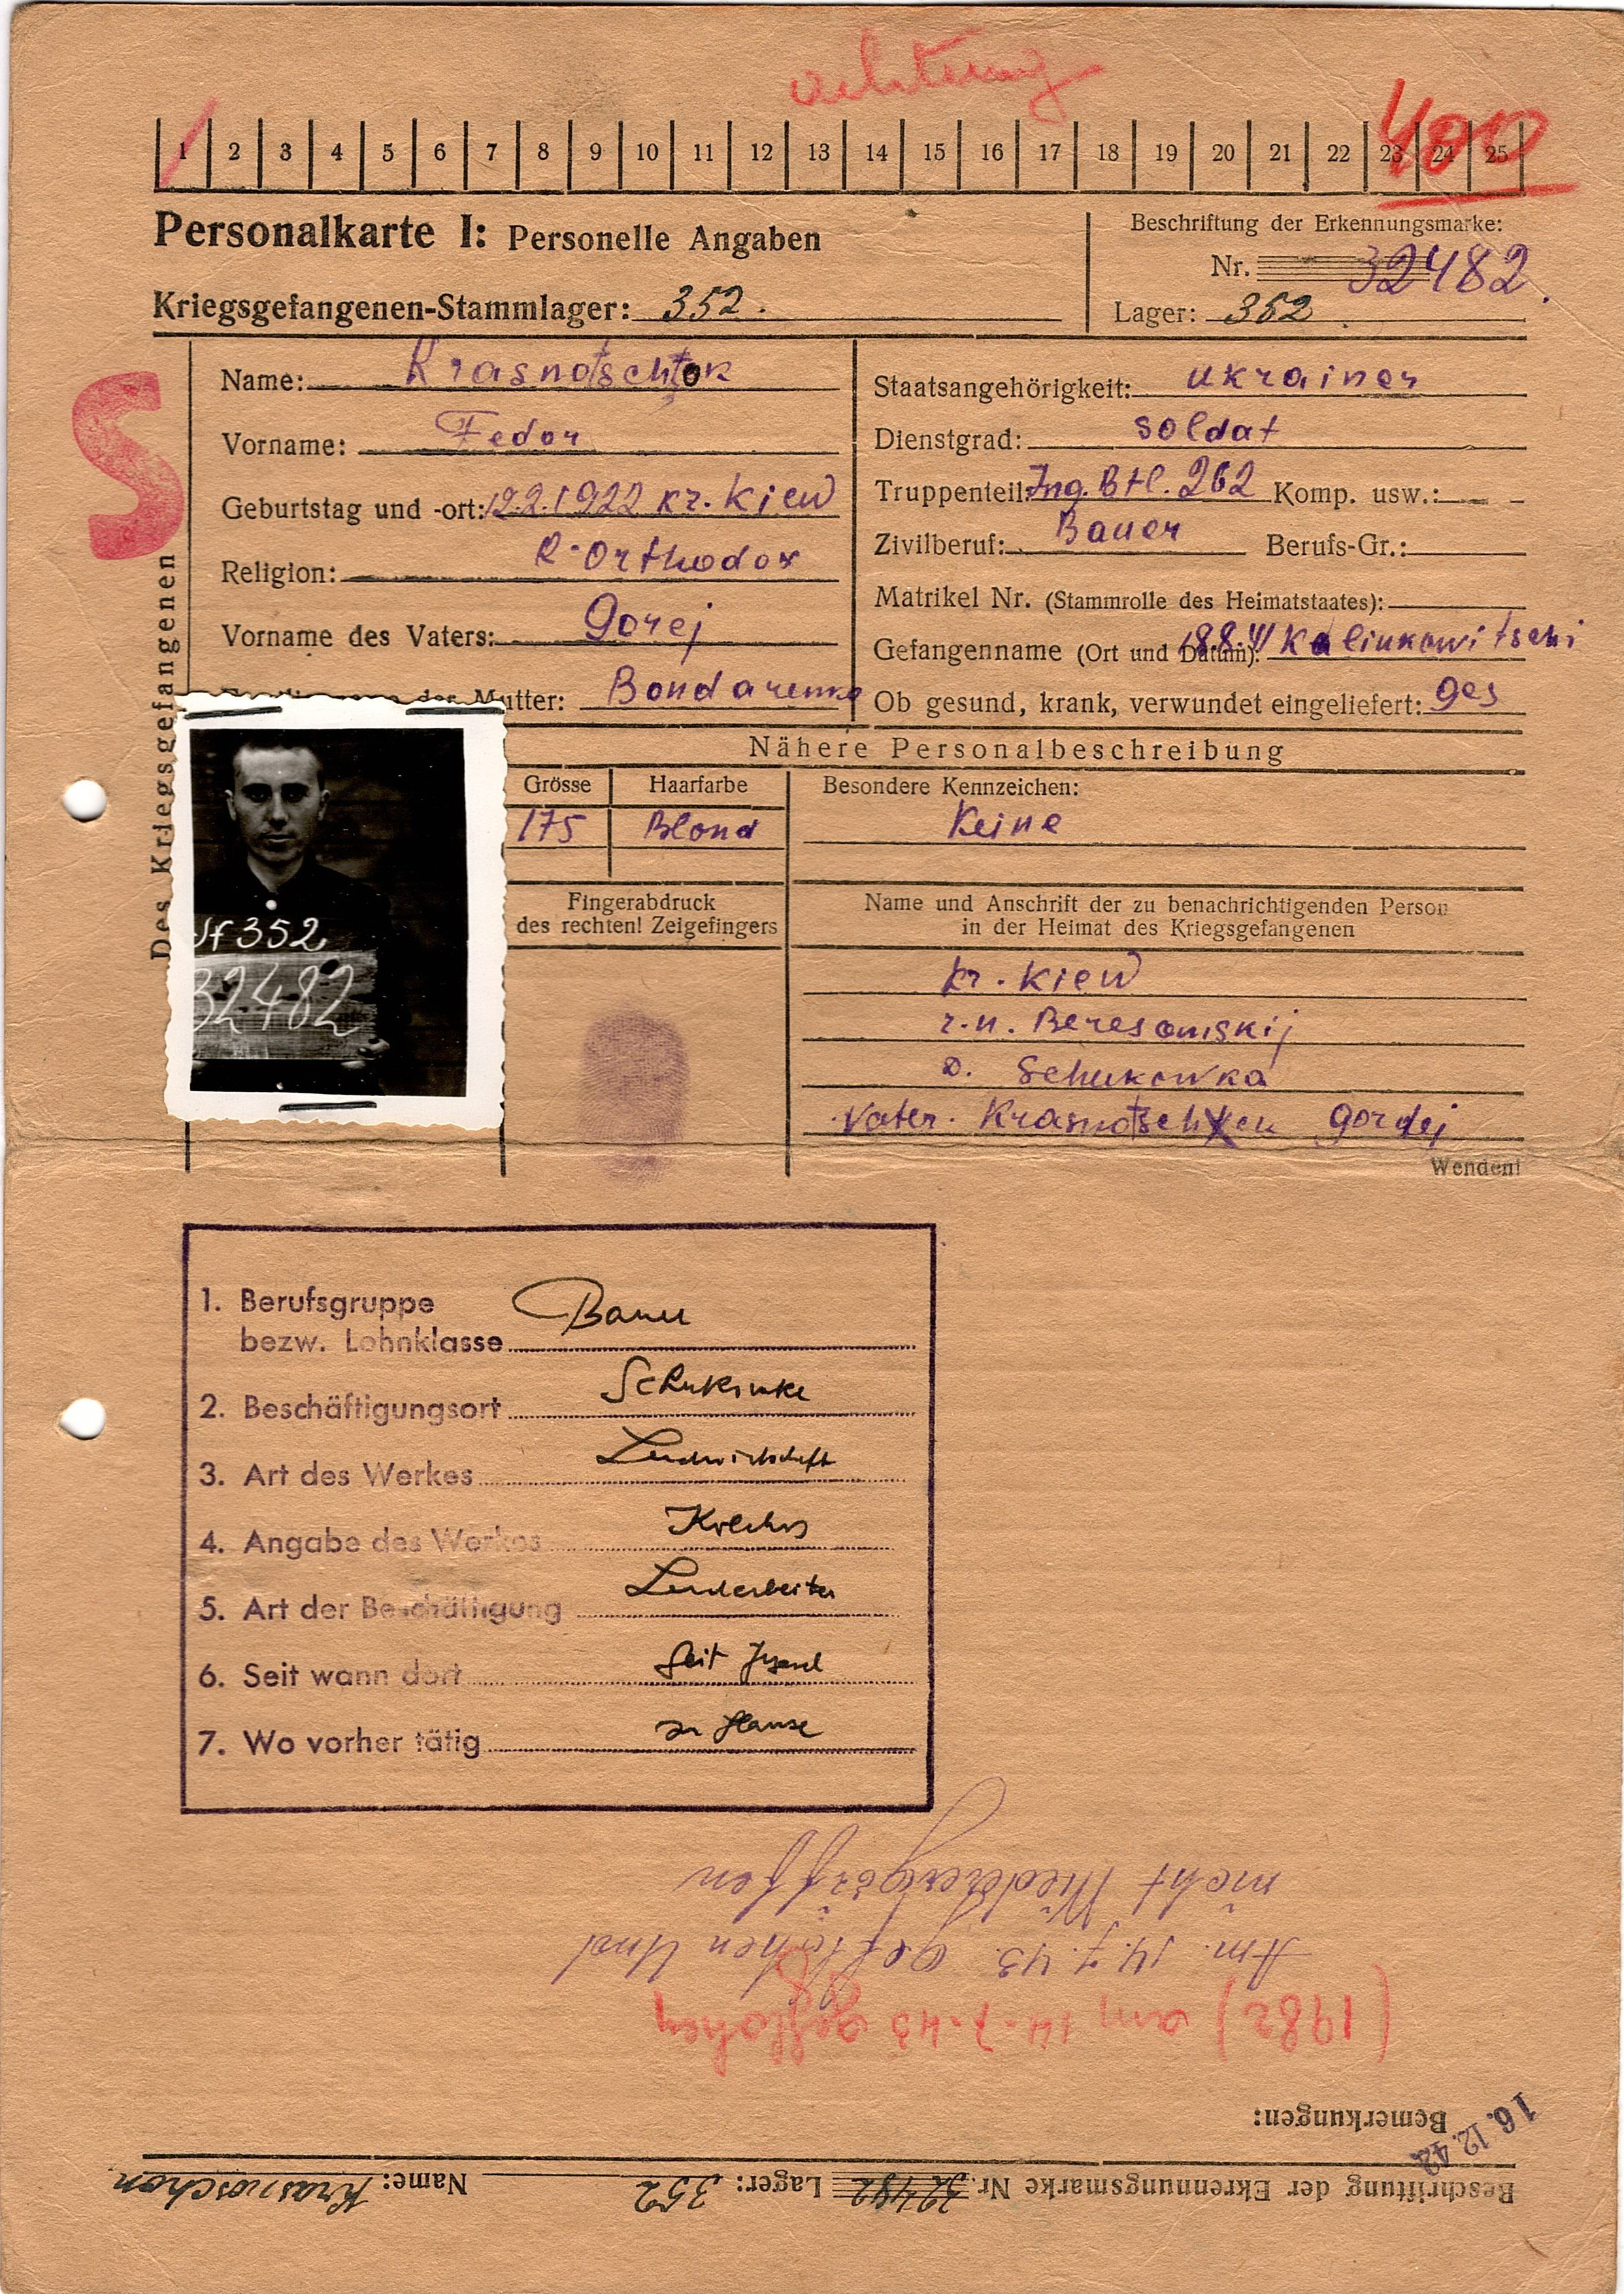 achtung
1 2 3 4 5 6 7 8 9 10 11 12 13 14 15 16 17 18 19 20 21 22 23 24 25
400
Personalkarte I: Personelle Angaben
Beschriftung der Erkennungsmarke:
Nr. 32482.
Kriegsgefangenen-Stammlager: 352.
Lager: 352.
S
Des Kriegsgefangenen
Name: Krasnotschtok
Vorname: Fedor
Geburtstag und -ort: 12.2.1922 Kr. Kiew
Religion: R-Orthodox
Vorname des Vaters: Gorej
der Mutter: Bondarenko
Staatsangehörigkeit: Ukrainer
Dienstgrad: Soldat
Truppenteil: Ing. Btl. 262 Komp. usw.: —
Zivilberuf: Bauer Berufs-Gr.:
Matrikel Nr. (Stammrolle des Heimatstaates):
Gefangenname (Ort und Datum): 18.8.41 Kalinkowitschi
Ob gesund, krank, verwundet eingeliefert: ges
Nähere Personalbeschreibung
Grösse Haarfarbe Besondere Kennzeichen:
175 Blond Keine
Fingerabdruck
des rechten! Zeigefingers
Name und Anschrift der zu benachrichtigenden Person
in der Heimat des Kriegsgefangenen
Kr. Kiew
r.n. Beresanskij
D. Schukowka
Vater. Gordej
Wenden!
352
32482
1. Berufsgruppe
bezw. Lohnklasse Bauer
2. Beschäftigungsort
3. Art des Werkes Landwirtschaft
4. Angabe des Werkes Kolchos
5. Art der Beschäftigung Landarbeiter
6. Seit wann dort Seit Jugend
7. Wo vorher tätig zu Hause
Beschriftung der Ekrennungsmarke Nr. 32482 Lager: 352 Name: Krasnoschon
Bemerkungen:
16.12.42
(1982) am 14.7.43 geflohen
Am. 14.7.43. geflohen Und
nicht Wiederergriffen